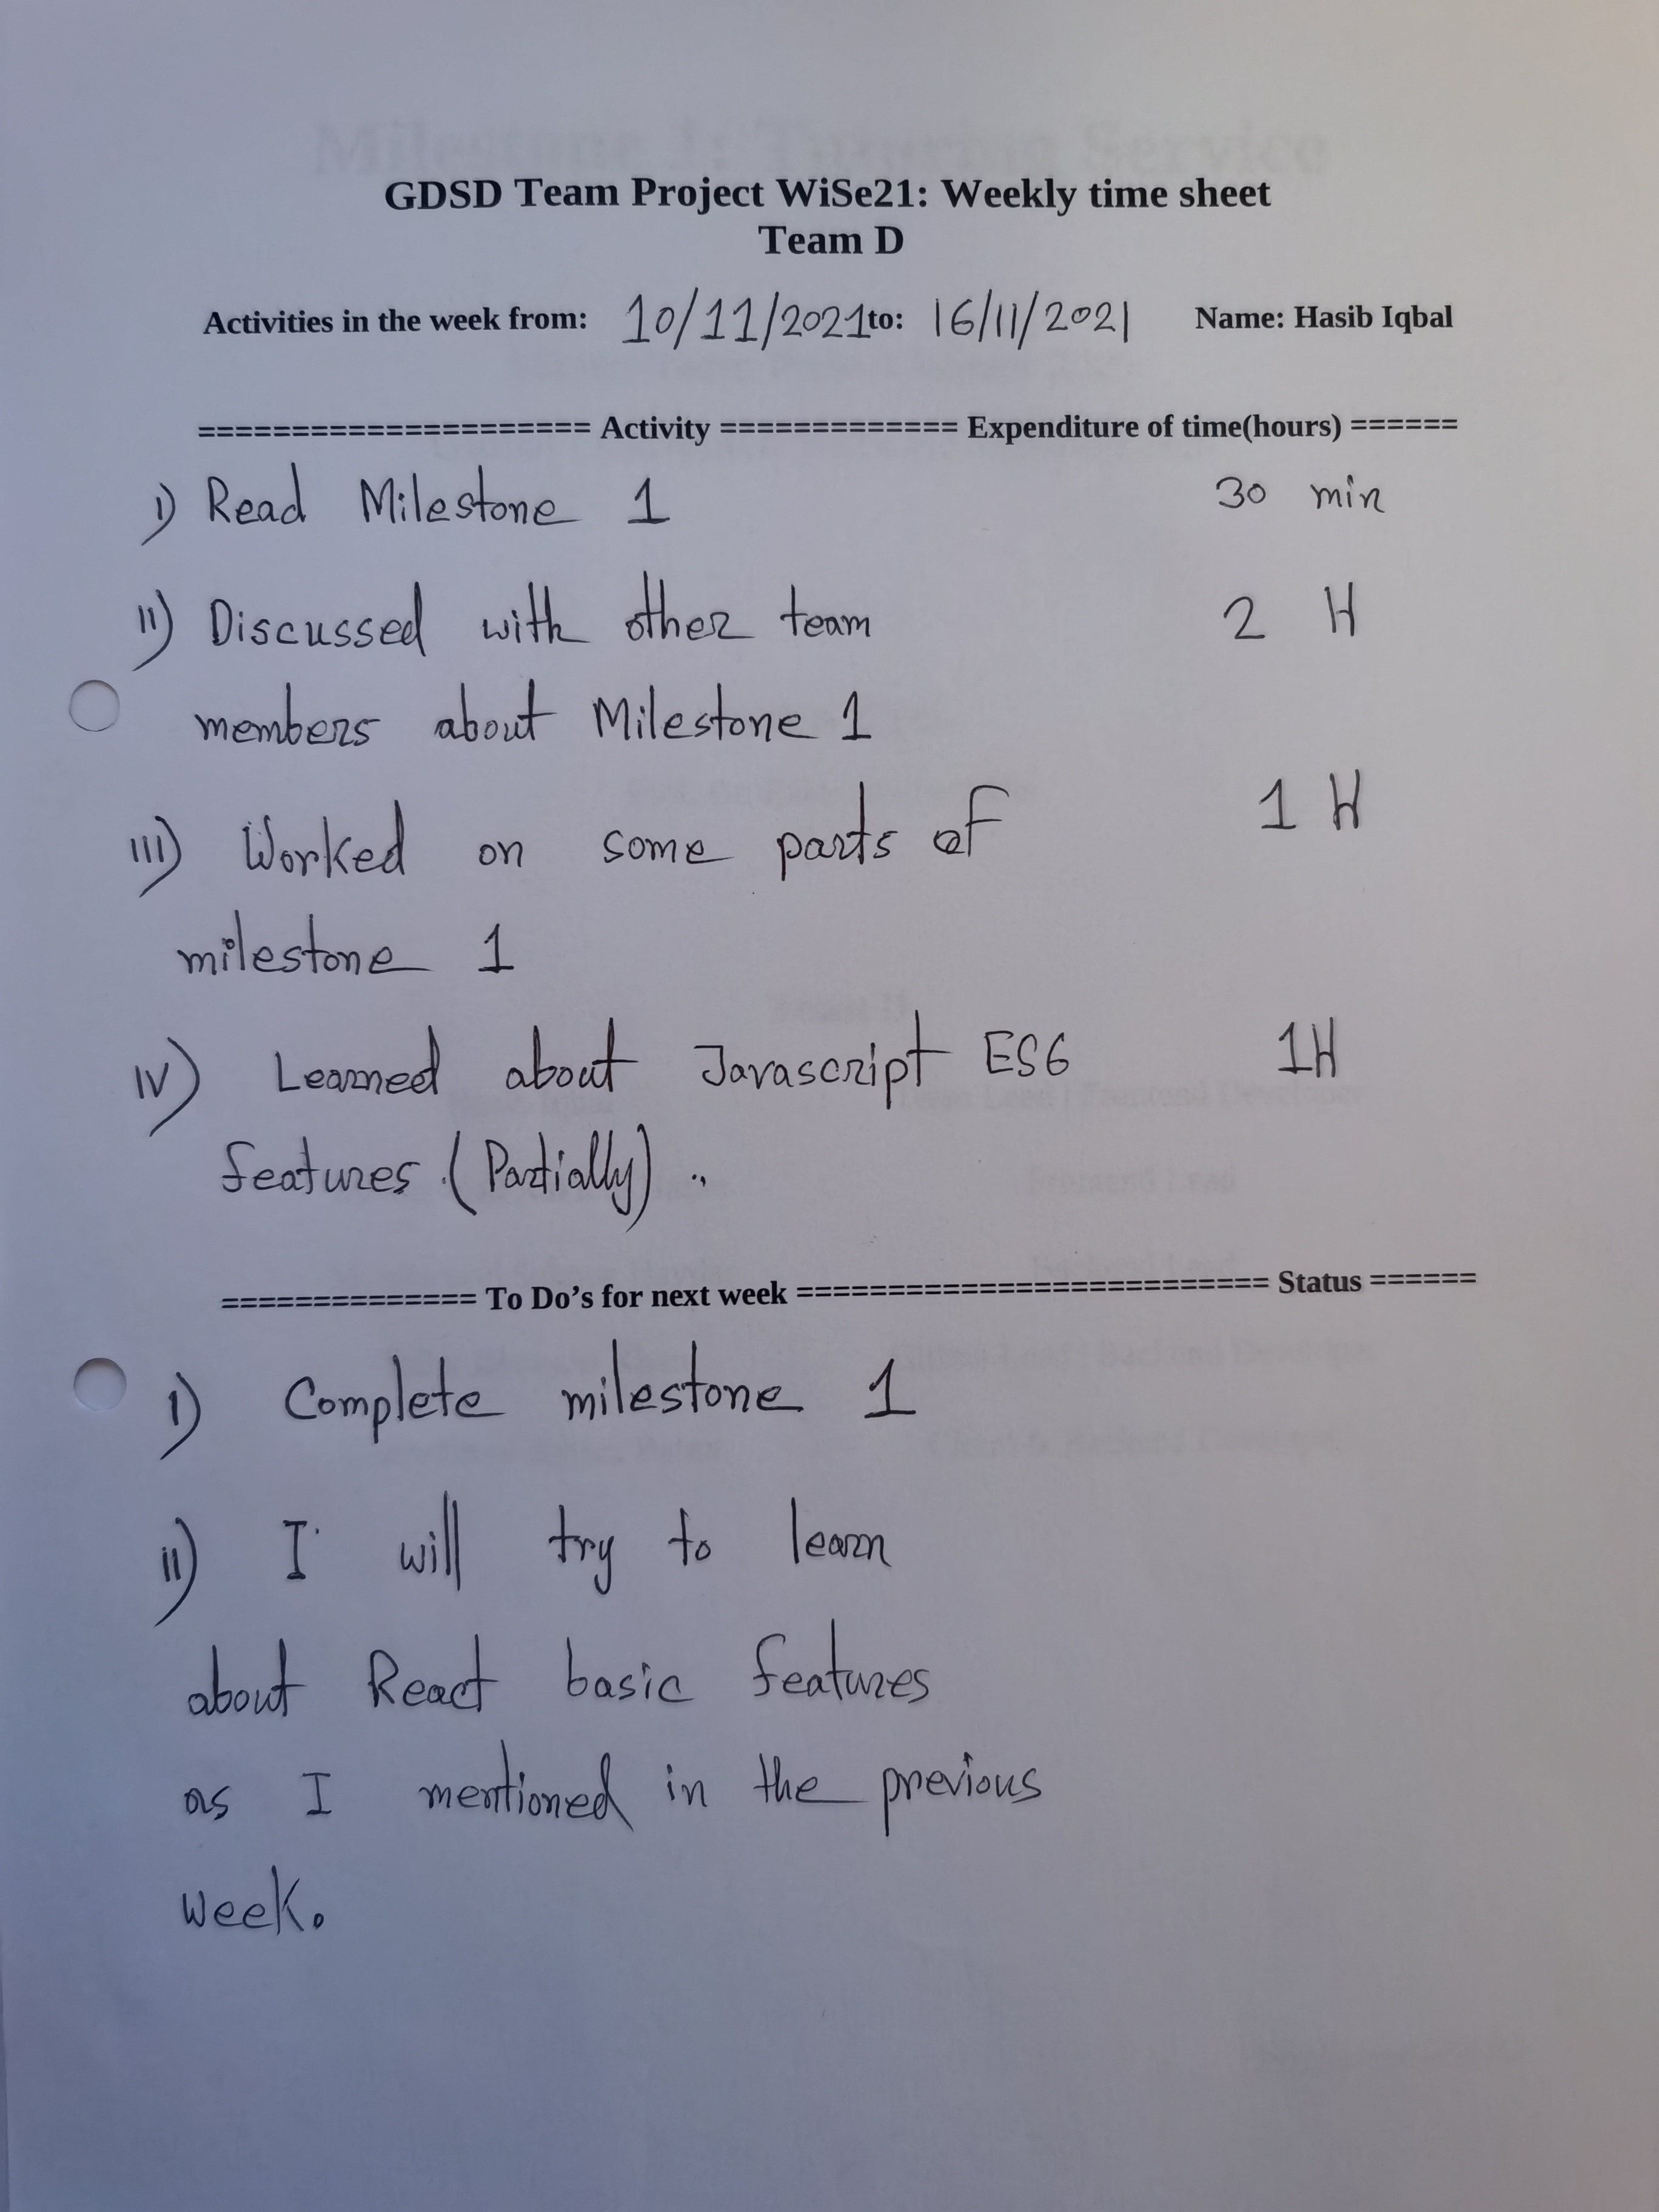 Milestone 1: Tutoring Service
GDSD Team Project WiSe21: Weekly time sheet
Team D
Activities in the week from: 10/11/2021 to: 16/11/2021 Name: Hasib Iqbal
===================== Activity ============= Expenditure of time(hours) ======
i) Read Milestone 1 30 min
ii) Discussed with other team 2 H
members about Milestone 1
iii) Worked on some parts of 1 H
milestone 1
iv) Learned about Javascript ES6 1H
features (Partially).
============== To Do's for next week ========================== Status ======
i) Complete milestone 1
ii) I will try to learn
about React basic features
as I mentioned in the previous
week.